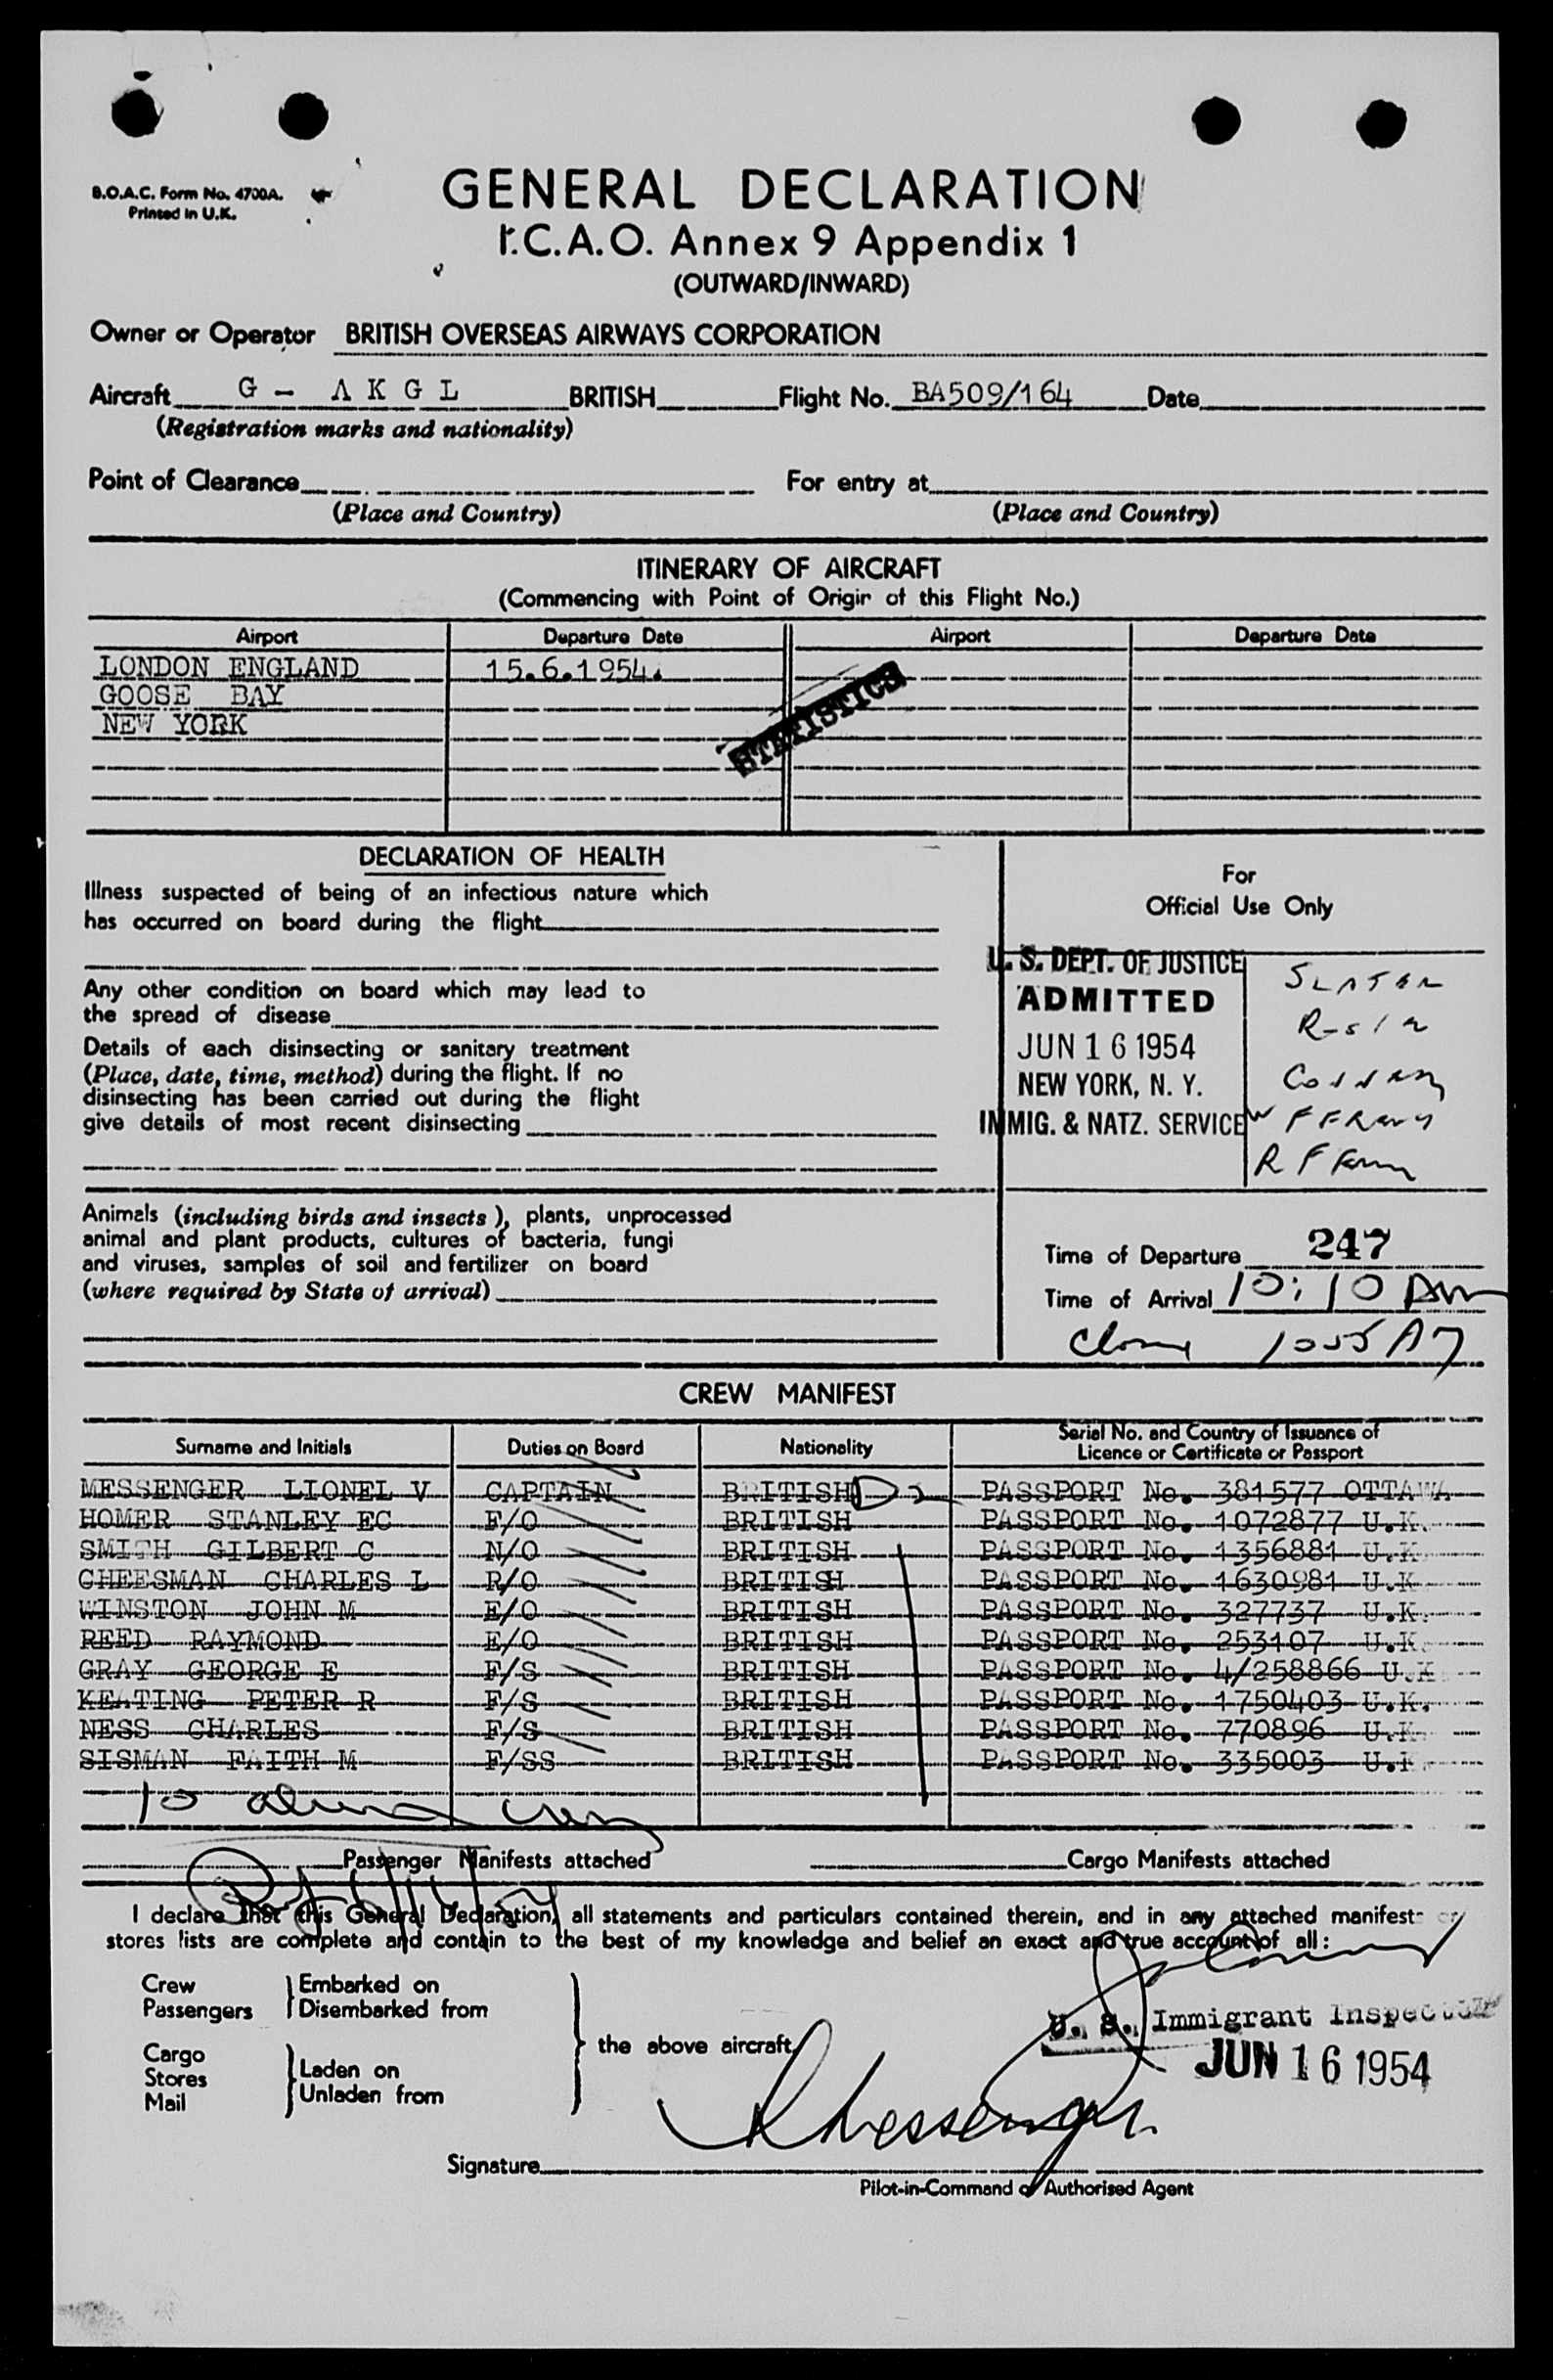 B.O.A.C. Form No. 4700A.
Printed in U.K.
GENERAL DECLARATION
I.C.A.O. Annex 9 Appendix 1
(OUTWARD/INWARD)
Owner or Operator BRITISH OVERSEAS AIRWAYS CORPORATION
Aircraft G - A K G L BRITISH Flight No. BA509/164 Date
(Registration marks and nationality)
Point of Clearance For entry at
(Place and Country) (Place and Country)
ITINERARY OF AIRCRAFT
(Commencing with Point of Origin of this Flight No.)
Airport Departure Date Airport Departure Date
LONDON ENGLAND 15.6.1954.
GOOSE BAY
NEW YORK
STATISTICS
DECLARATION OF HEALTH
Illness suspected of being of an infectious nature which
has occurred on board during the flight
Any other condition on board which may lead to
the spread of disease
Details of each disinsecting or sanitary treatment
(Place, date, time, method) during the flight. If no
disinsecting has been carried out during the flight
give details of most recent disinsecting
Animals (including birds and insects), plants, unprocessed
animal and plant products, cultures of bacteria, fungi
and viruses, samples of soil and fertilizer on board
(where required by State of arrival)
For
Official Use Only
U. S. DEPT. OF JUSTICE
ADMITTED
JUN 16 1954
NEW YORK, N. Y.
IMMIG. & NATZ. SERVICE
Time of Departure 247
Time of Arrival 10:10 AM
1055 AM
CREW MANIFEST
Surname and Initials Duties on Board Nationality Serial No. and Country of Issuance of Licence or Certificate or Passport
MESSENGER LIONEL V CAPTAIN BRITISH PASSPORT No. 381577 OTTAWA
HOMER STANLEY EC F/O BRITISH PASSPORT No. 1072877 U.K.
SMITH GILBERT C N/O BRITISH PASSPORT No. 1356881 U.K
CHEESMAN CHARLES L R/O BRITISH PASSPORT No. 1630981 U.K
WINSTON JOHN M E/O BRITISH PASSPORT No. 327737 U.K.
REED RAYMOND E/O BRITISH PASSPORT No. 253107 U.K.
GRAY GEORGE E F/S BRITISH PASSPORT No. 4/258866 U.K
KEATING PETER R F/S BRITISH PASSPORT No. 1750403 U.K.
NESS CHARLES F/S BRITISH PASSPORT No. 770896 U.K.
SISMAN FAITH M F/SS BRITISH PASSPORT No. 335003 U.K.
10 crew
Passenger Manifests attached Cargo Manifests attached
I declare that this General Declaration, all statements and particulars contained therein, and in any attached manifests or
stores lists are complete and contain to the best of my knowledge and belief an exact and true account of all:
Crew
Passengers
Embarked on
Disembarked from
Cargo
Stores
Mail
Laden on
Unladen from
the above aircraft
U. S. Immigrant Inspector
JUN 16 1954
Signature LMessenger
Pilot-in-Command or Authorised Agent